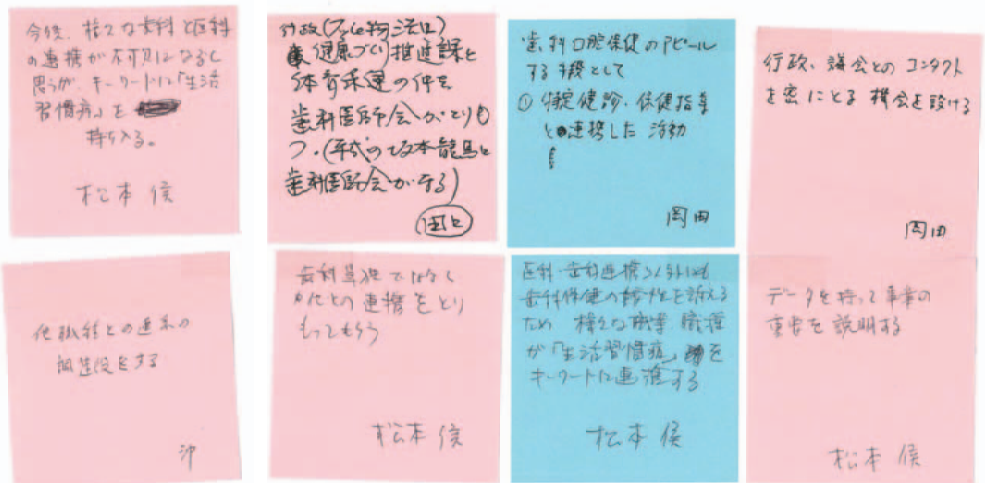 今後、様々な歯科と医科
の連携が不可欠になると
思うが、キーワードに「生活
習慣病」を
持ち入る。
松本 侯
健康づくり推進課と
体育保健の仲を
歯科医師会がとりも
つ。(平成の坂本龍馬を
歯科医師会がする)
歯科口腔保健のアピール
する機として
① 特定健診、保健指導
と連携した活動
岡田
行政、議会とのコンタクト
を密にとる機会を設ける
岡田
他職種との連系の
調整役をする
沖
歯科単独ではなく
他との連携をとり
もってもらう
松本 侯
医科・歯科連携
歯科保健の重要性を訴える
ため 様々な職業 職種
が「生活習慣病」を
キーワードに連携する
松本 侯
データを持って事業の
重要を説明する
松本 侯